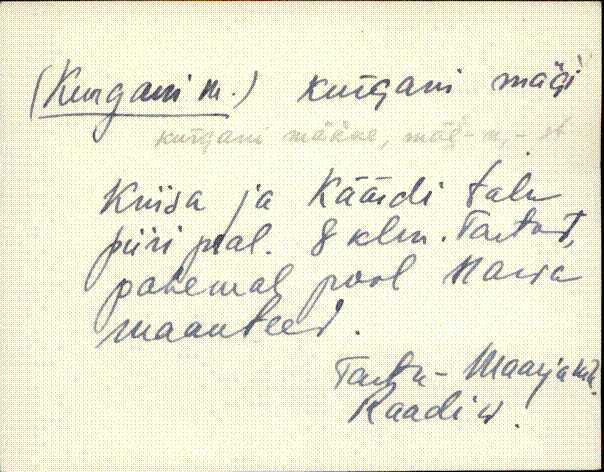 (Kurgani m.) kurgani mägi
kurgani määne, mäe- n, - st
Kriisa ja Käärdi talu
piiri peal. 8 klm. Tartust,
pahemal pool Narva
maanteed.
Tartu - Maarja khk.
Raadi v.